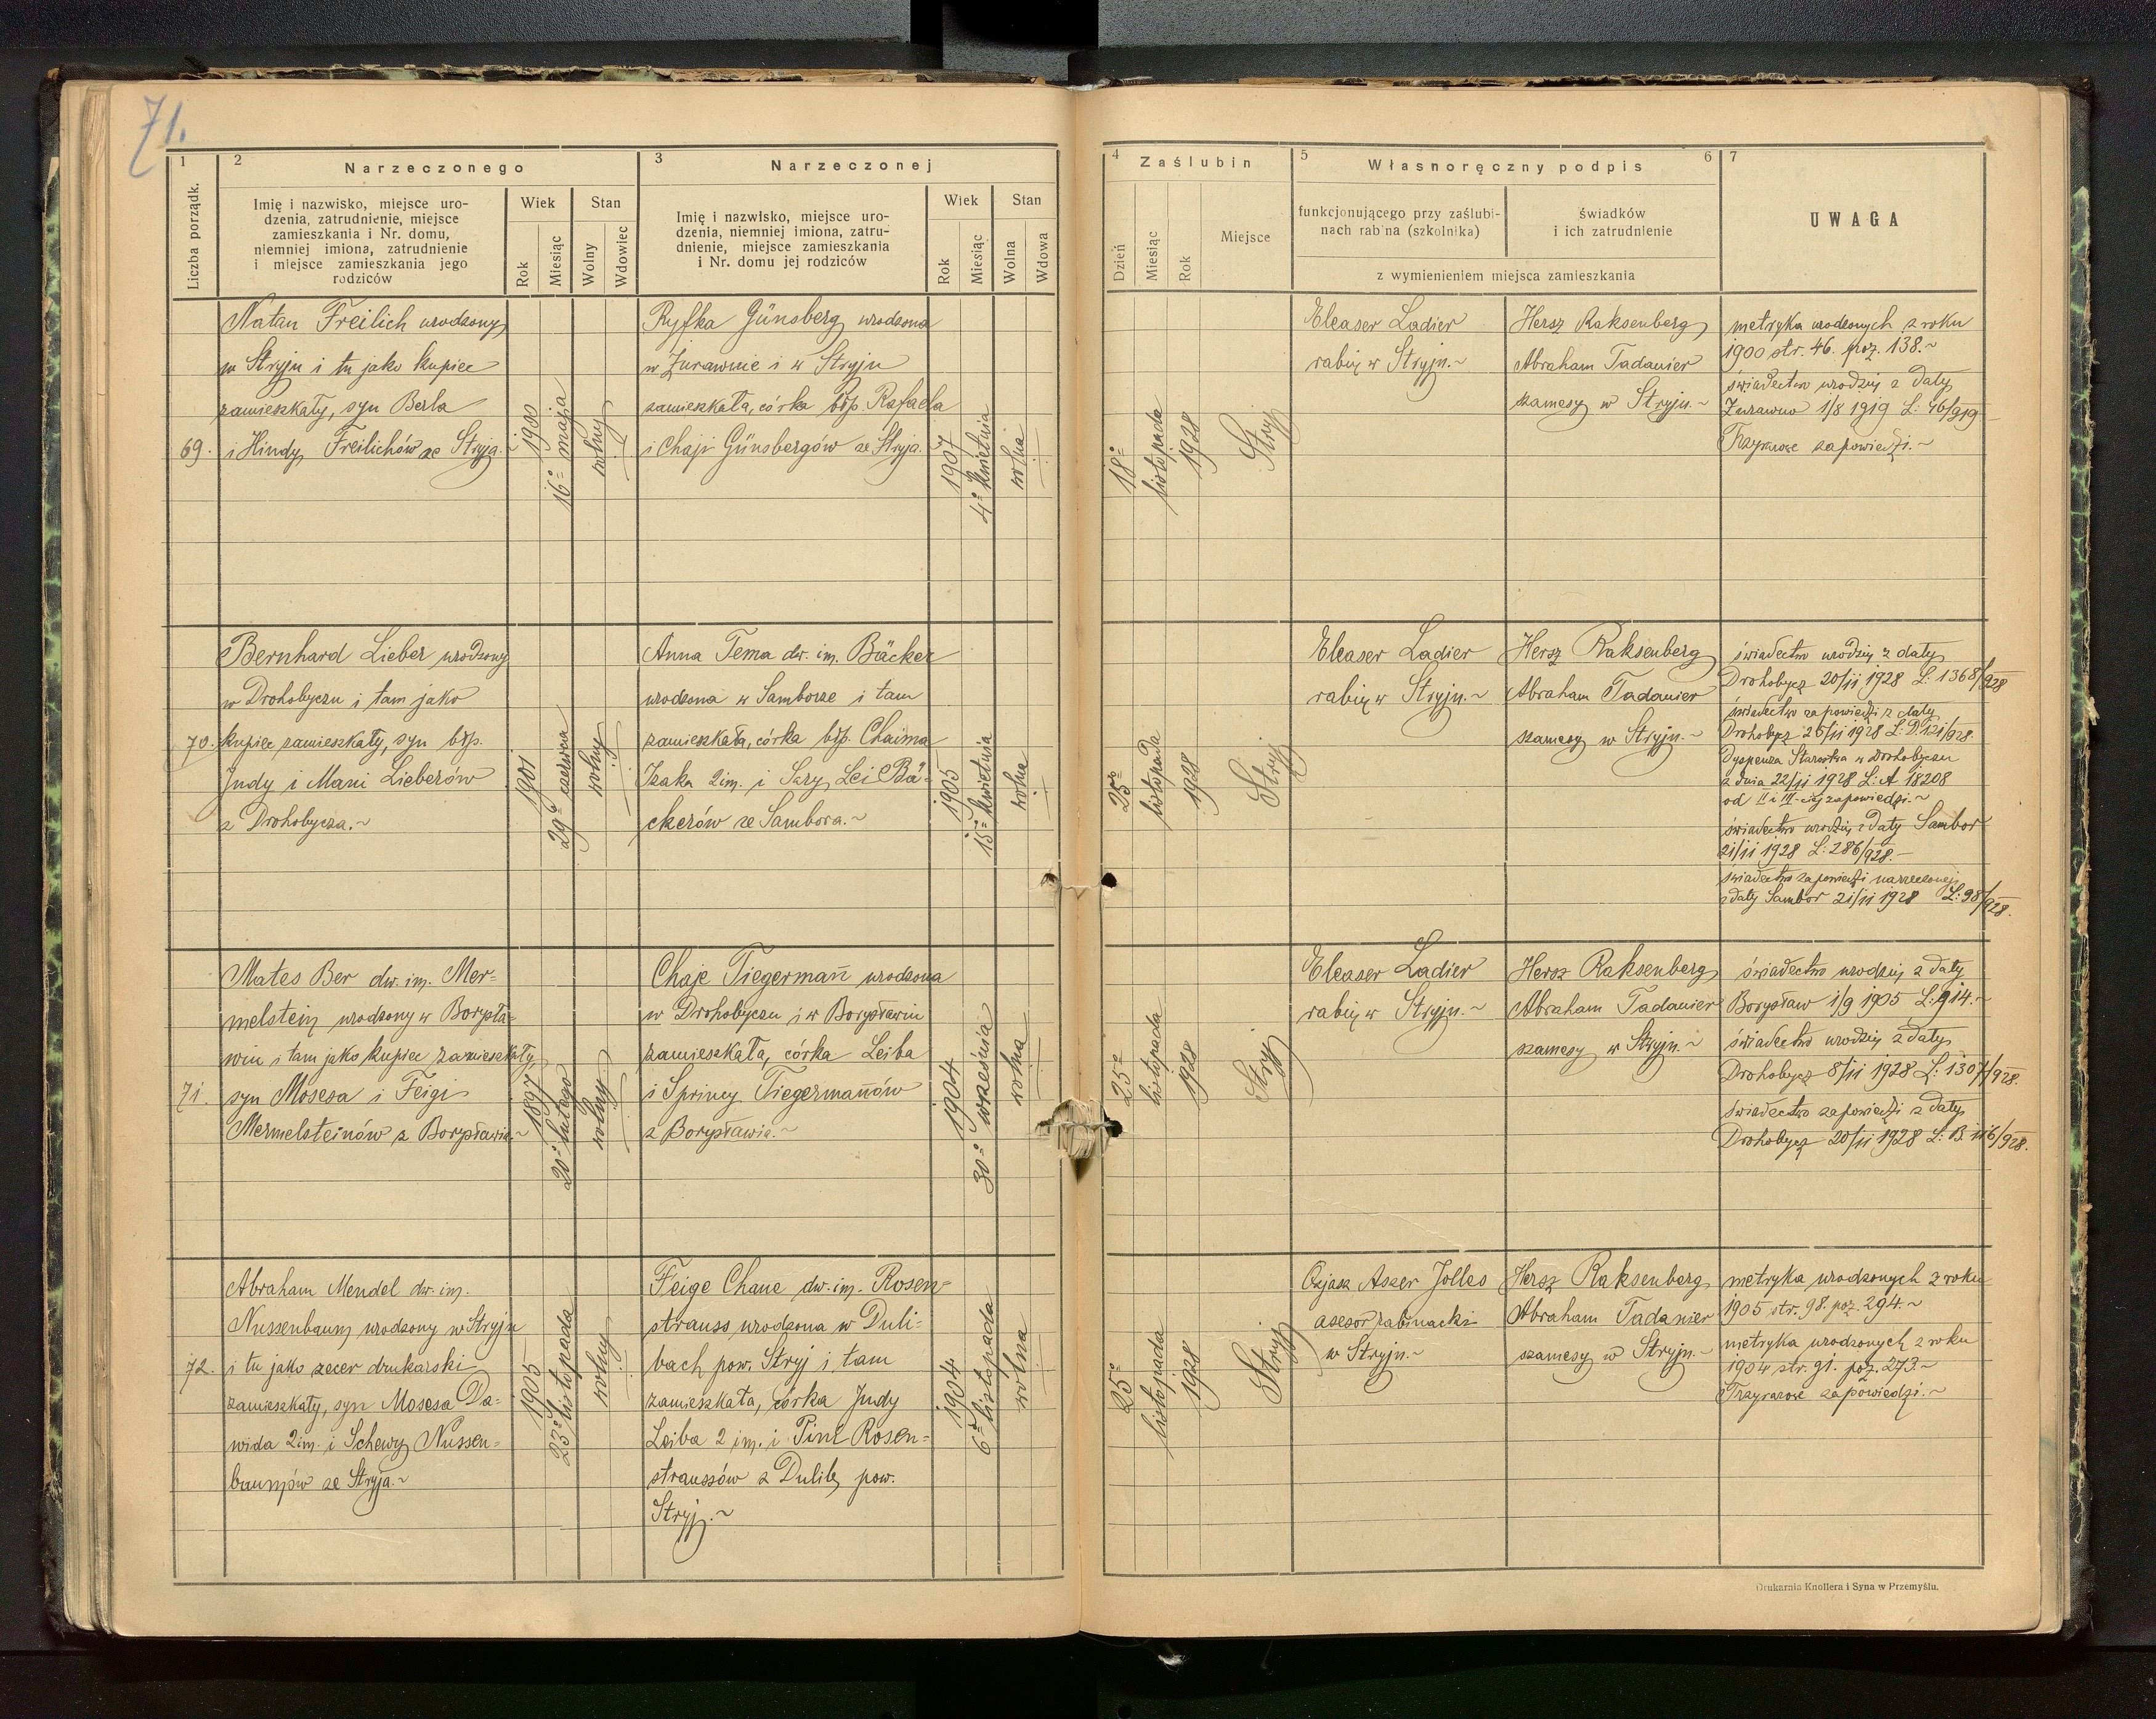 71.
1
2
Narzeczonego
3
Narzeczonej
Liczba porządk.
Imię i nazwisko, miejsce uro-
dzenia, zatrudnienie, miejsce
zamieszkania i Nr. domu,
niemniej imiona, zatrudnienie
i miejsce zamieszkania jego
rodziców
Wiek
Stan
Rok
Miesiąc
Wolny
Wdowiec
Imię i nazwisko, miejsce uro-
dzenia, niemniej imiona, zatru-
dnienie, miejsce zamieszkania
i Nr. domu jej rodziców
Wiek
Stan
Rok
Miesiąc
Wolna
Wdowa
69.
Natan Freilich urodzony
w Stryju i tu jako kupiec
zamieszkały, syn Berla
i Hindy Freilichów ze Stryja.~
1900
16º maja
wolny
Ryfka Günsberg urodzona
w Żurawnie i w Stryju
zamieszkała, córka błp. Rafaela
i Chaji Günsbergów ze Stryja.
1907
4º kwietnia
wolna
70.
Bernhard Lieber urodzony
w Drohobyczu i tam jako
kupiec zamieszkały, syn błp.
Judy i Mani Lieberów
z Drohobycza.~
1901
29º czerwca
wolny
Anna Tema dw. im. Bäcker
urodzona w Samborze i tam
zamieszkała, córka błp. Chaima
Izaka 2im. i Szry Lei Bä-
ckerów ze Sambora.~
1905
15º kwietnia
wolna
71.
Mates Ber dw. im. Mer=
melstein urodzony w Borysła=
wiu i tam jako kupiec zamieszkały,
syn Mosesa i Feigi
Mermelsteinów z Borysławia.~
1897
20º lutego
wolny
Chaje Tiegermañ urodzona
w Drohobyczu i w Borysławiu
zamieszkała, córka Leiba
i Sprincy Tiegermañów
z Borysławia.~
1904
30º września
wolna
72.
Abraham Mendel dw. im.
Nussenbaum urodzony w Stryju
i tu jako zecer drukarski
zamieszkały, syn Mosesa Da=
wida 2im. i Schewy Nussen=
baumów ze Stryja.~
1905
23º listopada
wolny
Feige Chane dw. im. Rosen=
strauss urodzona w Duli=
bach pow. Stryj i tam
zamieszkała, córka Judy
Leiba 2 im. i Rosen=
straussów z Dulib, pow.
Stryj.~
1904
6º listopada
wolna
4
Zaślubin
5
Własnoręczny podpis
6
7
Dzień
Miesiąc
Rok
Miejsce
funkcjonującego przy zaślubi-
nach rabina (szkolnika)
świadków
i ich zatrudnienie
z wymienieniem miejsca zamieszkania
UWAGA
18º
listopada
1928
Stryj
Eleaser Ladier
rabin w Stryju.~
Hersz Raksenberg
Abraham Tadanier
szamesy w Stryju.~
metryka urodzonych z roku
1900 str. 46. poz. 138.~
świadectwo urodzin z daty
Żurawno 1/8 1919 L: 46/919
Trzykrotne zapowiedzi.~
25º
listopada
1928
Stryj
Eleaser Ladier
rabin w Stryju.~
Hersz Raksenberg
Abraham Tadanier
szamesy w Stryju.~
świadectwo urodzin z daty
Drohobycz 20/11 1928 L: 1368/928
świadectwo zapowiedzi z daty
Drohobycz 25/11 1928 L: D. 121/928.
Dyspensa Starostwa w Drohobyczu
z dnia 22/11 1928 L: A 18208
od II i III-ciej zapowiedzi.~
świadectwo urodzin z daty Sambor
21/11 1928 L: 286/928.—
świadectwo zapowiedzi narzeczonej
z daty Sambor 21/11 1928 L: 98/928.
25º
listopada
1928
Stryj
Eleaser Ladier
rabin w Stryju.~
Hersz Raksenberg
Abraham Tadanier
szamesy w Stryju.~
świadectwo urodzin z daty
Borysław 1/9 1905 L: 914.~
świadectwo urodzin z daty
Drohobycz 8/11 1928 L: 1307/928.
świadectwo zapowiedzi z daty
Drohobycz 20/11 1928 L: B. 116/928.
25º
listopada
1928
Stryj
Ozjasz Aszer Jolles
asesor rabinacki
w Stryju.~
Hersz Raksenberg
Abraham Tadanier
szamesy w Stryju.~
metryka urodzonych z roku
1905 str. 98. poz. 294.~
metryka urodzonych z roku
1904 str. 91. poz. 273.~
Trzyrazowe zapowiedzi.~
Drukarnia Knollera i Syna w Przemyślu.